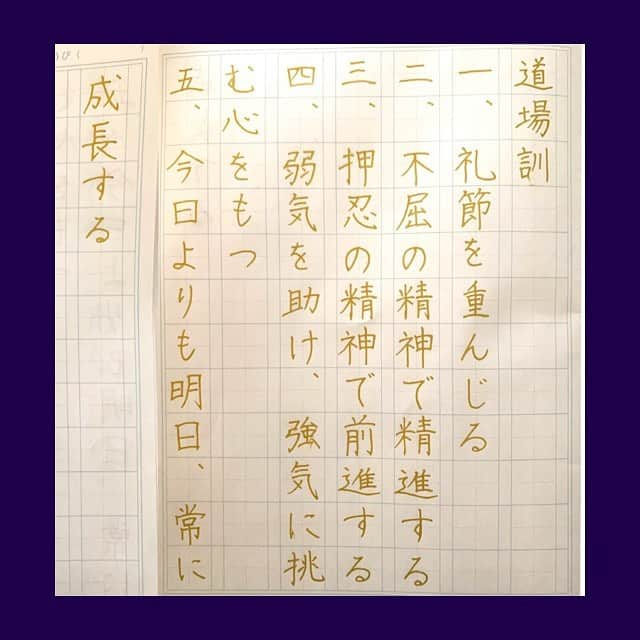 道場訓
一、礼節を重んじる
二、不屈の精神で精進する
三、押忍の精神で前進する
四、弱気を助け、強気に挑
む心をもつ
五、今日よりも明日、常に
成長する